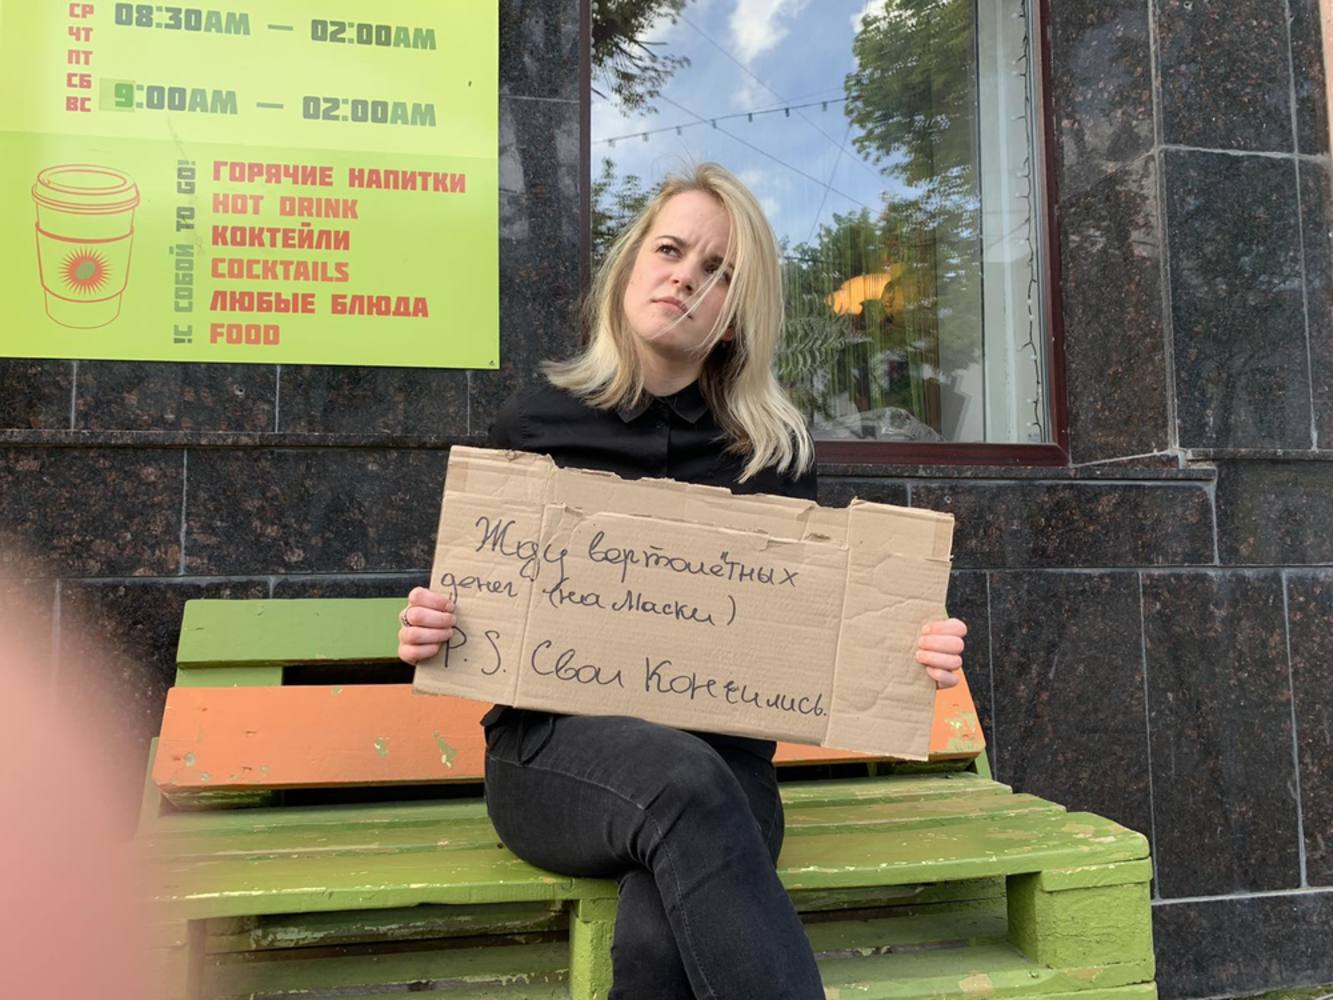 СР
ЧТ
ПТ
СБ
ВС
08:30AM — 02:00AM
9:00AM — 02:00AM
!С СОБОЙ TO GO!
ГОРЯЧИЕ НАПИТКИ
HOT DRINK
КОКТЕЙЛИ
COCKTAILS
ЛЮБЫЕ БЛЮДА
FOOD
Жду вертолётных
денег (на маски)
P.S. Свои Кончились.